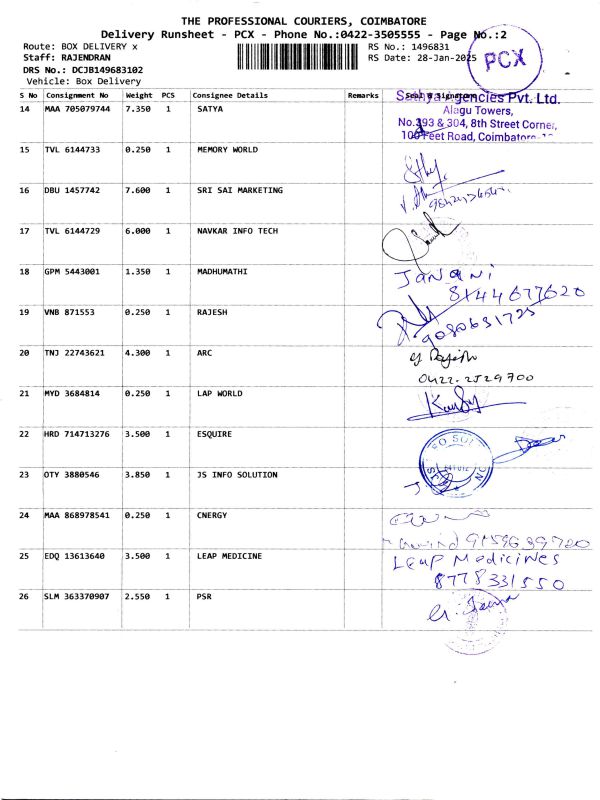 THE PROFESSIONAL COURIERS, COIMBATORE
Delivery Runsheet - PCX - Phone No.:0422-3505555 - Page No.:2
Route: BOX DELIVERY x
RS No.: 1496831
Staff: RAJENDRAN
RS Date: 28-Jan-2025
PCX
DRS No.: DCJB149683102
Vehicle: Box Delivery
S No Consignment No Weight PCS Consignee Details Remarks Seal & Signature
Sathya Agencies Pvt. Ltd.
Alagu Towers,
No.393 & 304, 8th Street Corner,
100 Feet Road, Coimbatore-
14 MAA 705079744 7.350 1 SATYA
15 TVL 6144733 0.250 1 MEMORY WORLD
16 DBU 1457742 7.600 1 SRI SAI MARKETING
17 TVL 6144729 6.000 1 NAVKAR INFO TECH
18 GPM 5443001 1.350 1 MADHUMATHI
Janani
8144677620
19 VNB 871553 0.250 1 RAJESH
9080631725
20 TNJ 22743621 4.300 1 ARC
0422-2529700
21 MYD 3684814 0.250 1 LAP WORLD
22 HRD 714713276 3.500 1 ESQUIRE
23 OTY 3880546 3.850 1 JS INFO SOLUTION
24 MAA 868978541 0.250 1 CNERGY
9159639720
25 EDQ 13613640 3.500 1 LEAP MEDICINE
Leap Medicines
8778331550
26 SLM 363370907 2.550 1 PSR